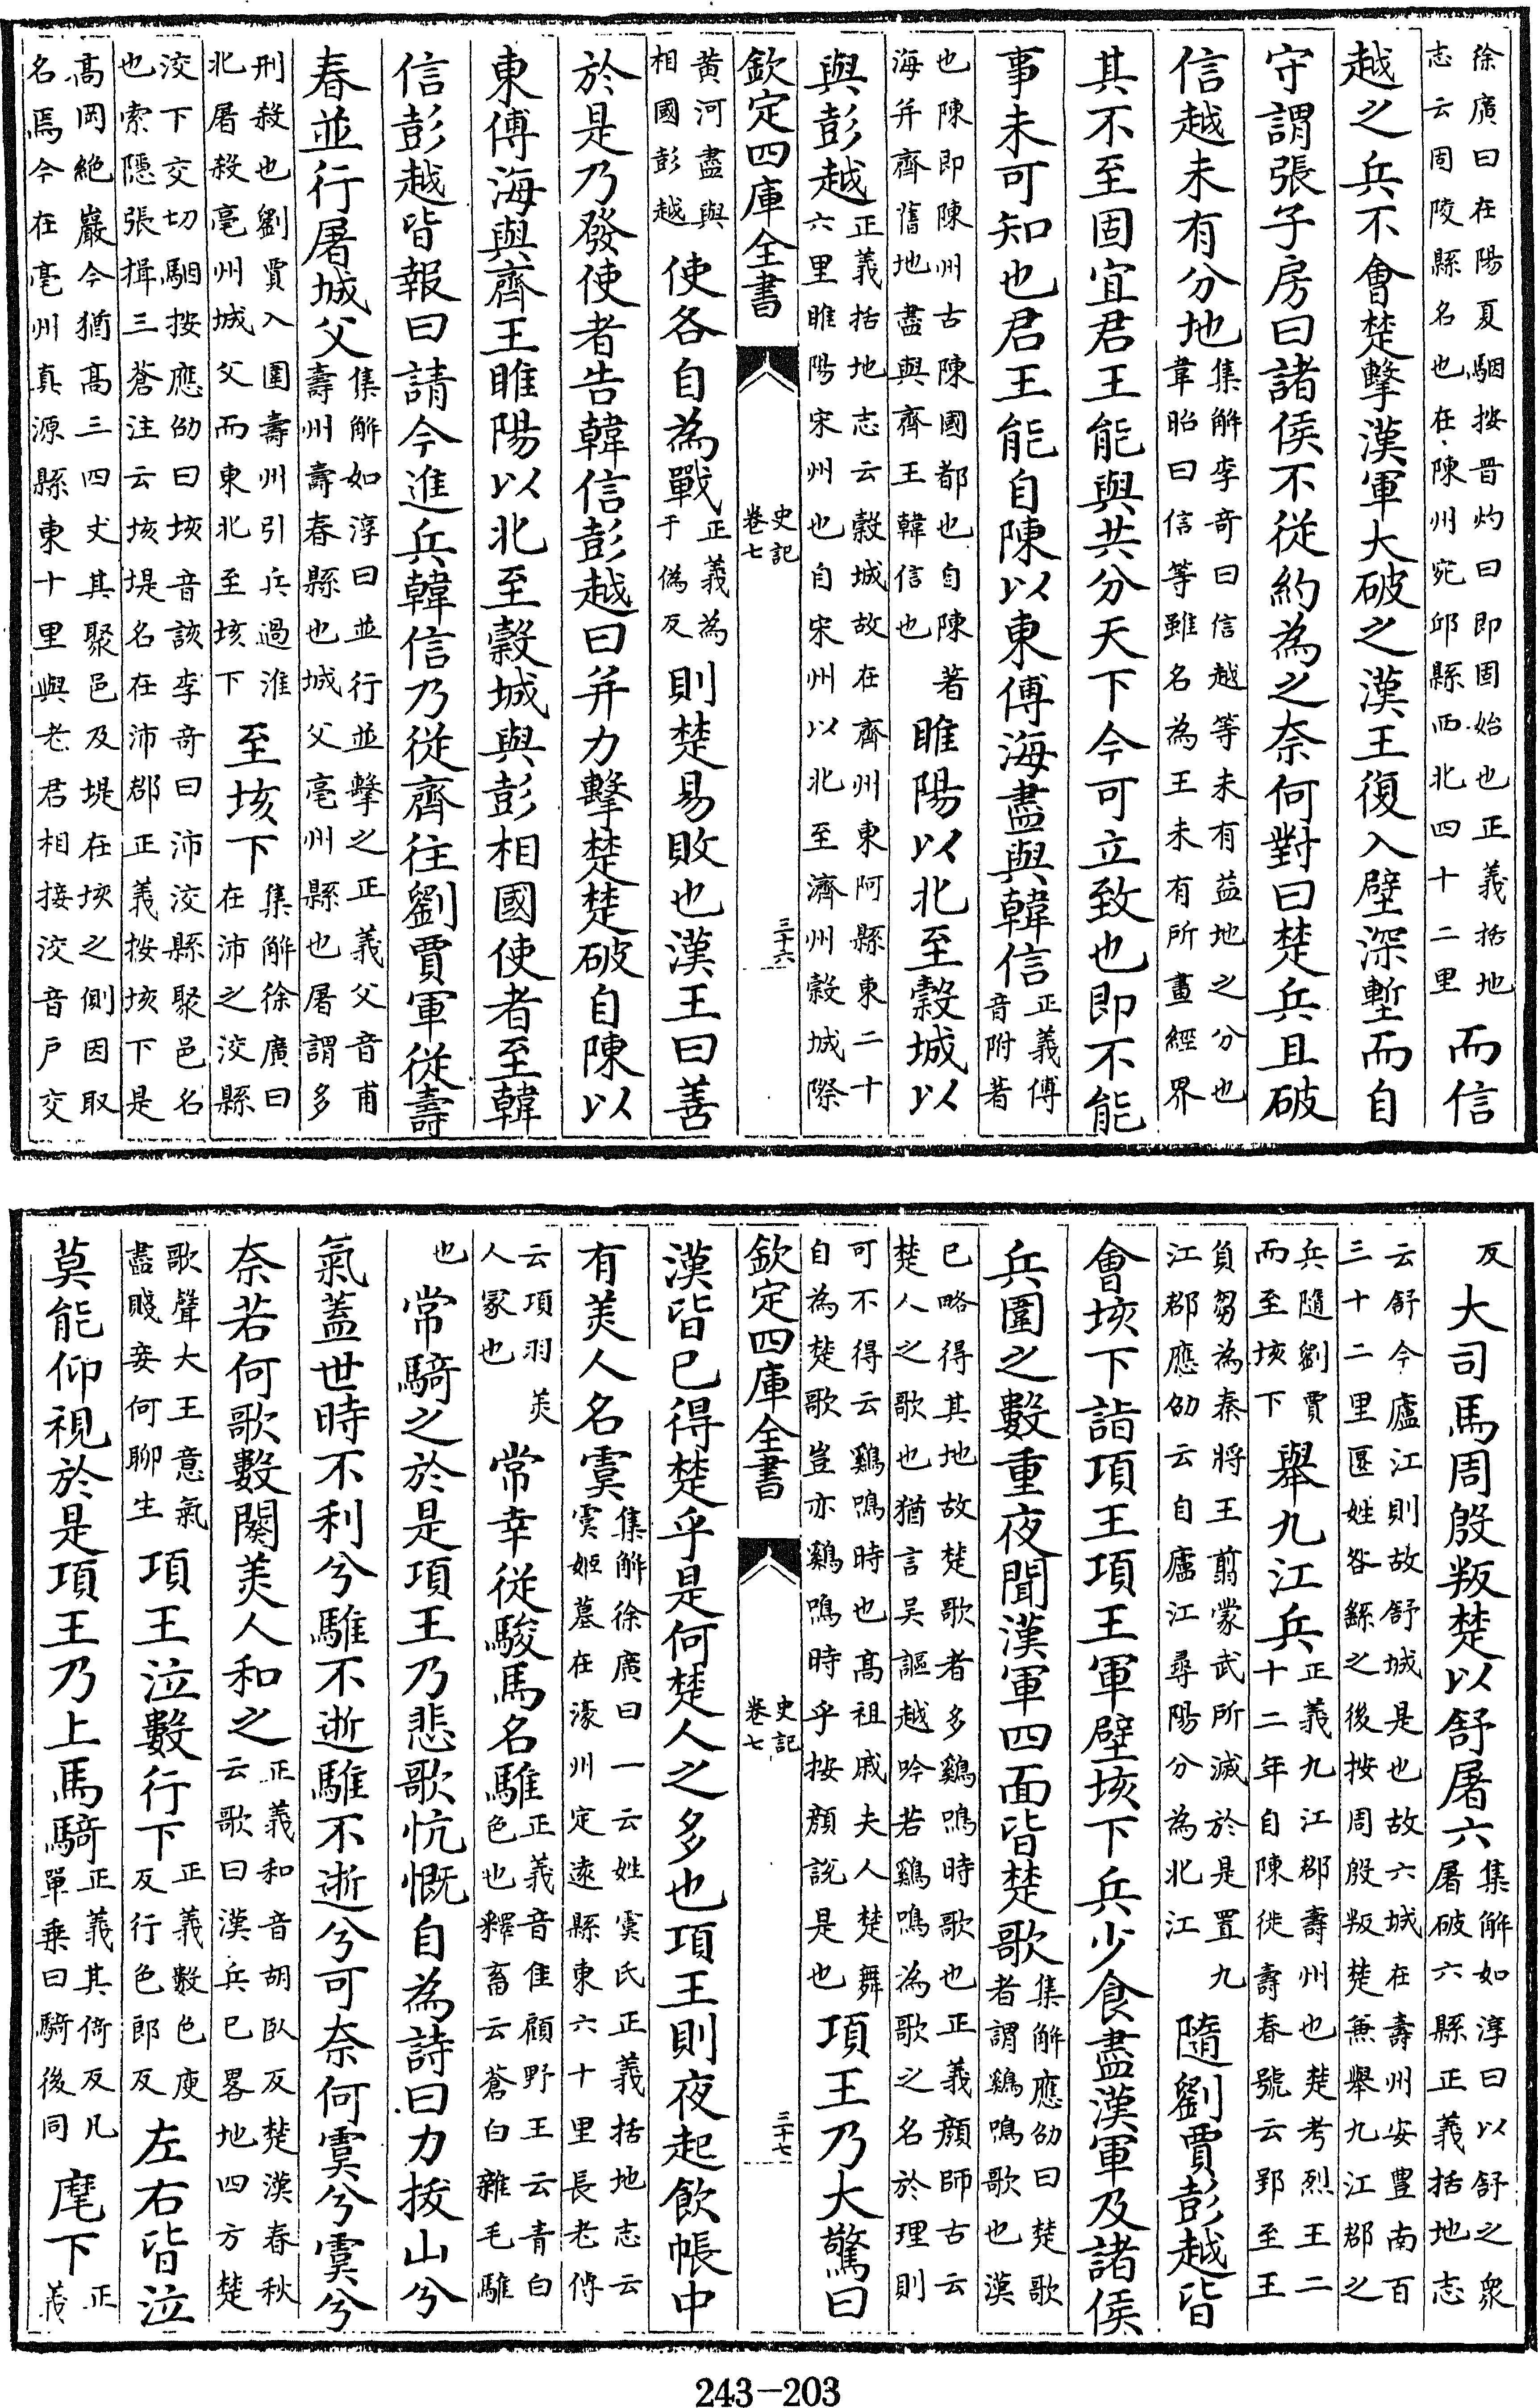 徐廣曰在陽夏駰按晉灼曰即固始也正義括地志云固陵縣名也在陳州宛邱縣西北四十二里而信
越之兵不會楚擊漢軍大破之漢王復入壁深塹而自
守謂張子房曰諸侯不從約為之奈何對曰楚兵且破
信越未有分地集解李奇曰信越等未有益地之分也韋昭曰信等雖名為王未有所畫經界
其不至固宜君王能與共分天下今可立致也即不能
事未可知也君王能自陳以東傅海盡與韓信正義傅音附著
也陳即陳州古陳國都也自陳著海并齊舊地盡與齊王韓信也睢陽以北至穀城以
與彭越正義括地志云穀城故在齊州東阿縣東二十六里睢陽宋州也自宋州以北至濟州穀城際
欽定四庫全書 史記卷七 三十六
黃河盡與相國彭越使各自為戰正義為于偽反則楚易敗也漢王曰善
於是乃發使者告韓信彭越曰并力擊楚楚破自陳以
東傅海與齊王睢陽以北至穀城與彭相國使者至韓
信彭越皆報曰請今進兵韓信乃從齊往劉賈軍從壽
春並行屠城父集解如淳曰並行並擊之正義父音甫壽州壽春縣也城父亳州縣也屠謂多
刑殺也劉賈入圍壽州引兵過淮北屠殺亳州城父而東北至垓下至垓下集解徐廣曰在沛之洨縣
洨下交切駰按應劭曰垓音該李奇曰沛洨縣聚邑名也索隱張揖三蒼注云垓堤名在沛郡正義按垓下是
高岡絶巖今猶高三四丈其聚邑及堤在垓之側因取名焉今在亳州真源縣東十里與老君相接洨音戶交
反大司馬周殷叛楚以舒屠六集解如淳曰以舒之衆屠破六縣正義括地志
云舒今廬江則故舒城是也故六城在壽州安豐南百三十二里匽姓咎繇之後按周殷叛楚兼舉九江郡之
兵隨劉賈而至垓下舉九江兵正義九江郡壽州也楚考烈王二十二年自陳徙壽春號云郢至王
負芻為秦將王翦蒙武所滅於是置九江郡應劭云自廬江尋陽分為北江隨劉賈彭越皆
會垓下詣項王項王軍壁垓下兵少食盡漢軍及諸侯
兵圍之數重夜聞漢軍四面皆楚歌集解應劭曰楚歌者謂雞鳴歌也漢
已略得其地故楚歌者多鷄鳴時歌也正義顏師古云楚人之歌也猶言吳謳越吟若鷄鳴為歌之名於理則
可不得云鷄鳴時也高祖戚夫人楚舞自為楚歌豈亦鷄鳴時乎按顏說是也項王乃大驚曰
欽定四庫全書 史記卷七 三十七
漢皆已得楚乎是何楚人之多也項王則夜起飲帳中
有美人名虞集解徐廣曰一云姓虞氏正義括地志云虞姬墓在濠州定遠縣東六十里長老傳
云項羽美人冢也常幸從駿馬名騅正義音隹顧野王云青白色也釋畜云蒼白雜毛騅
也常騎之於是項王乃悲歌忼慨自為詩曰力拔山兮
氣蓋世時不利兮騅不逝騅不逝兮可奈何虞兮虞兮
奈若何歌數闋美人和之正義和音胡臥反楚漢春秋云歌曰漢兵已畧地四方楚
歌聲大王意氣盡賤妾何聊生項王泣數行下正義數色庾反行色郎反左右皆泣
莫能仰視於是項王乃上馬騎正義其倚反凡單乗曰騎後同麾下正義
243-203